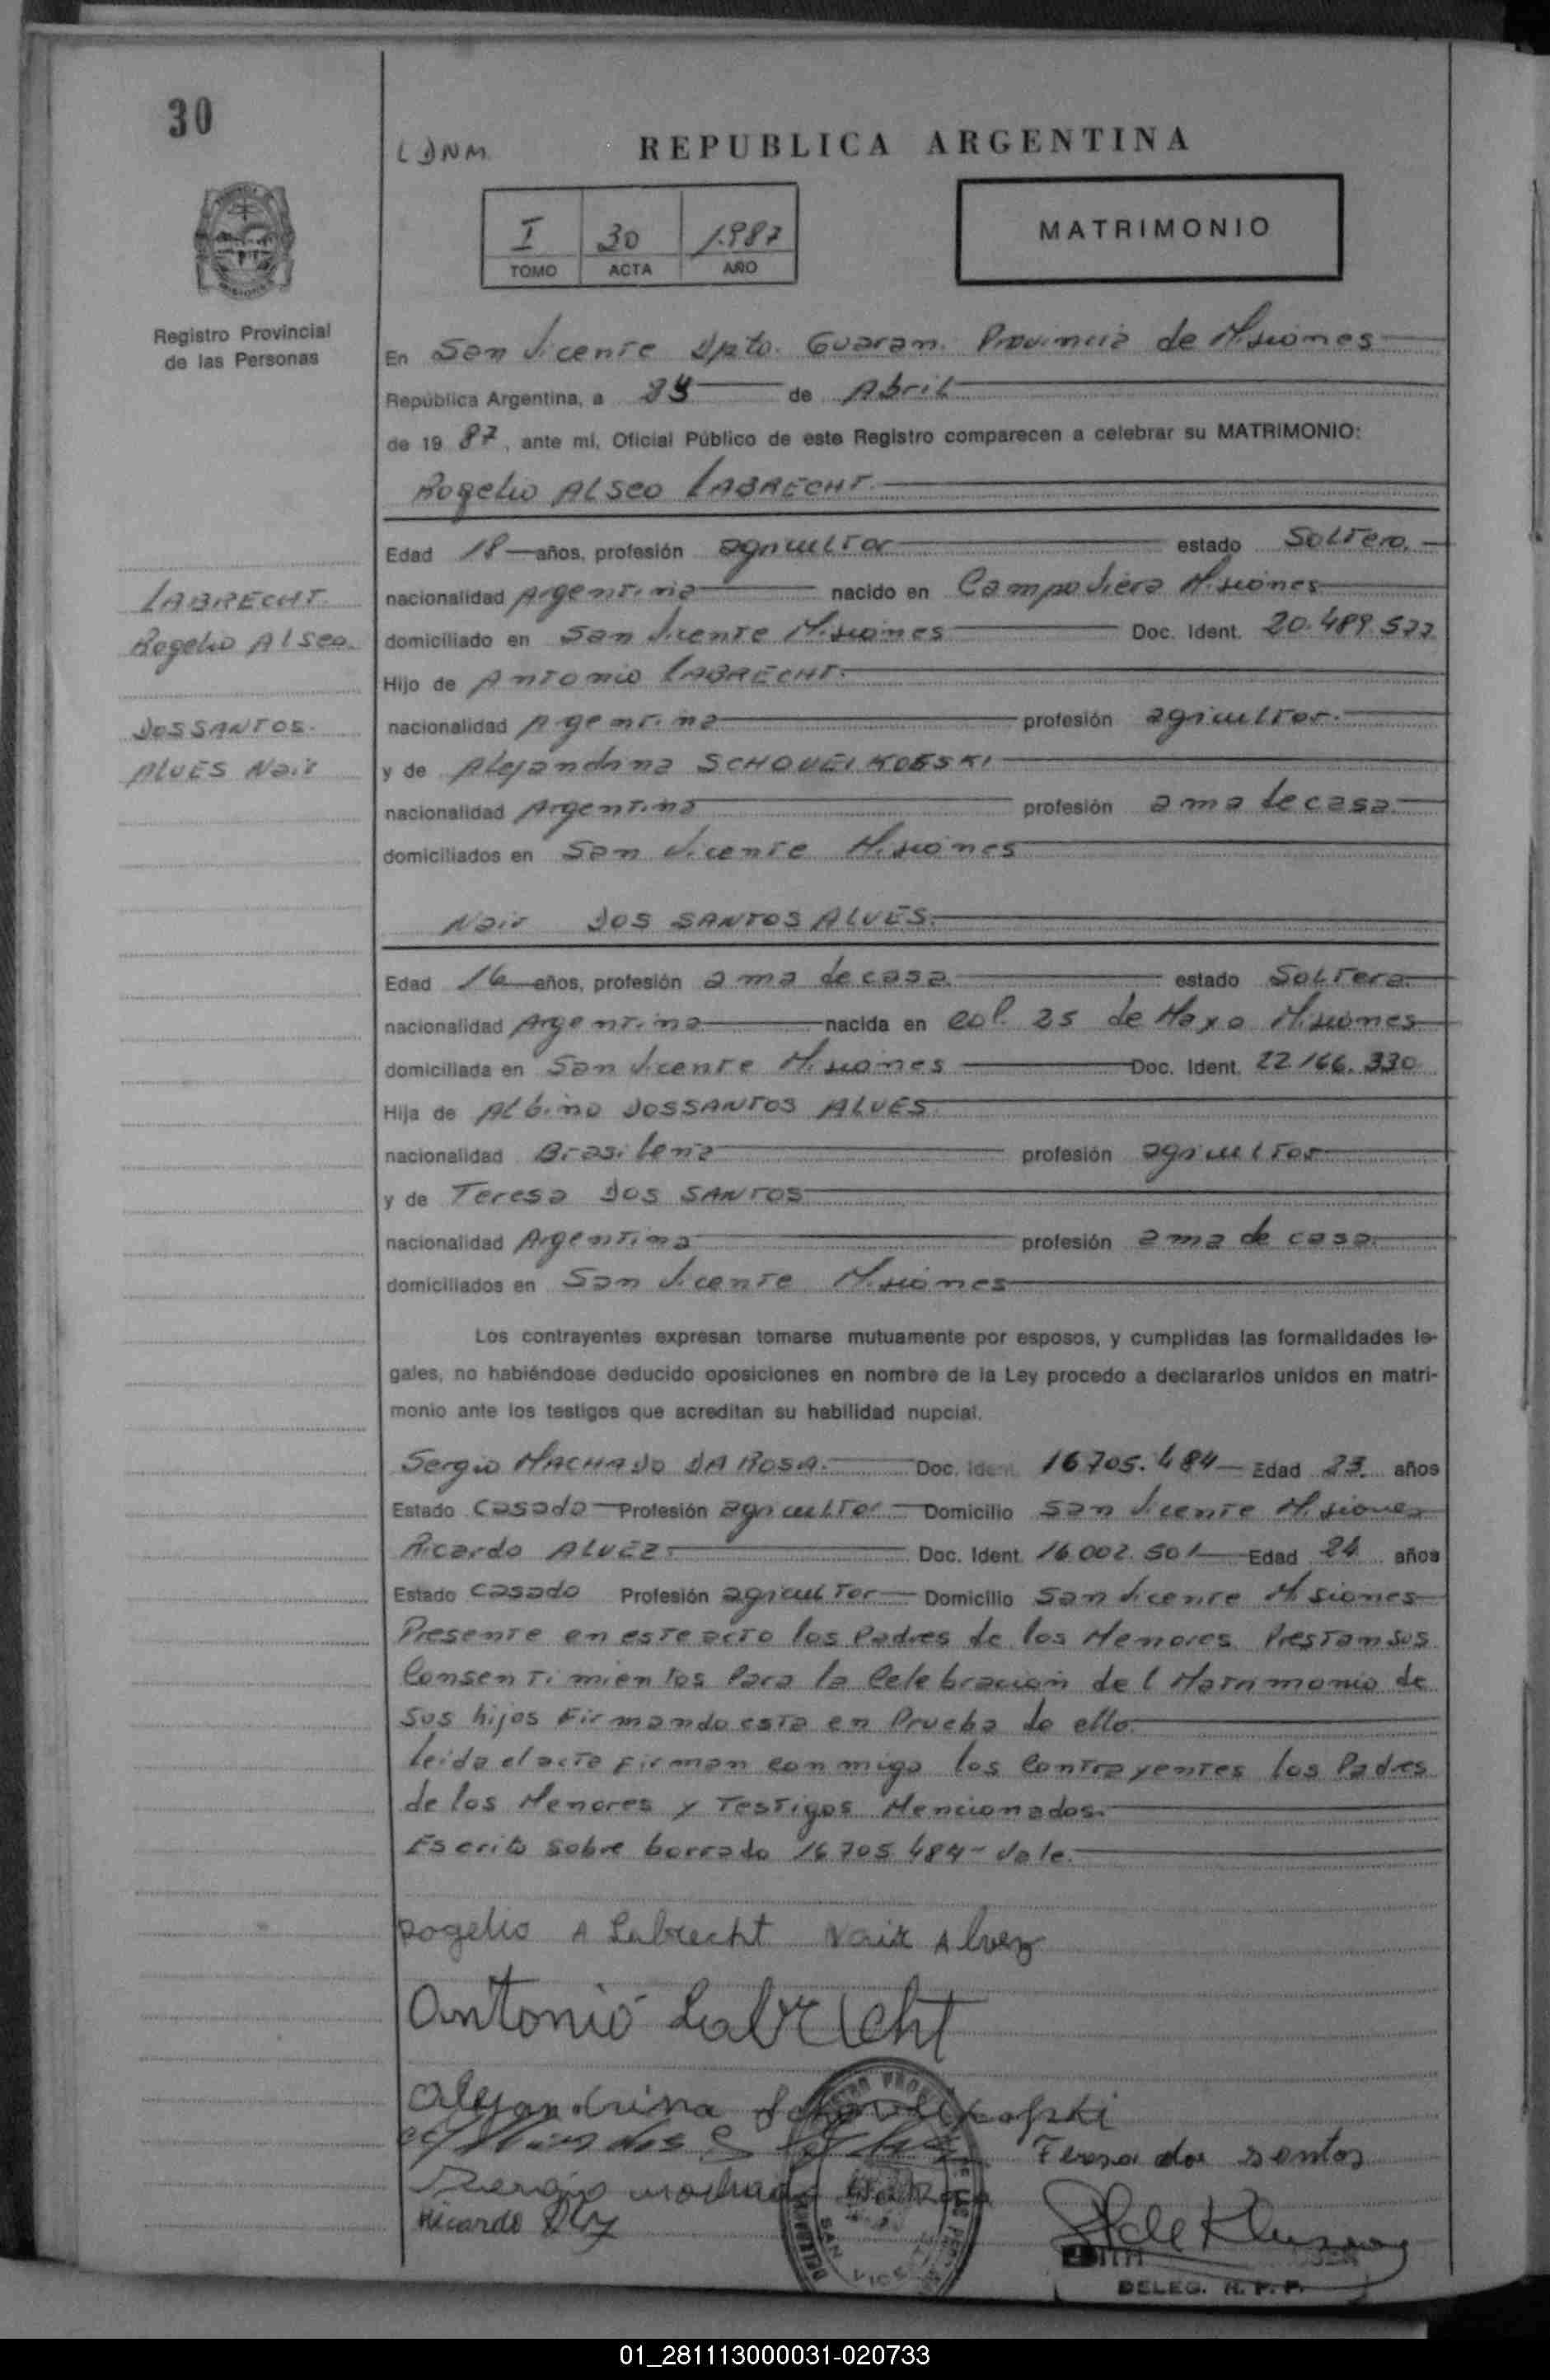 30
LDNM
REPUBLICA ARGENTINA
I 30 1.987
TOMO ACTA AÑO
MATRIMONIO
Registro Provincial
de las Personas
En San Vicente Dpto. Guarani Provincia de Misiones
República Argentina, a de Abril
de 19 87, ante mí, Oficial Público de este Registro comparecen a celebrar su MATRIMONIO:
Rogelio ALSEO LABRECHT.
Edad 18 años, profesión agricultor estado Soltero.
LABRECHT.
Rogelio Alseo.
DOSSANTOS.
ALVES Nair
nacionalidad Argentina nacido en Campo Viera Misiones
domiciliado en San Vicente Misiones Doc. Ident. 20.489.577
Hijo de Antonio LABRECHT.
nacionalidad Argentina profesión agricultor.
y de Alejandrina SCHOVEIKOESKI
nacionalidad Argentina profesión ama de casa.
domiciliados en San Vicente Misiones
Nair DOS SANTOS ALVES.
Edad 16 años, profesión ama de casa. estado Soltera.
nacionalidad Argentina nacida en Col. 25 de Mayo Misiones
domiciliada en San Vicente Misiones Doc. Ident. 22.166.330
Hija de Albino DOSSANTOS ALVES.
nacionalidad Brasileña profesión agricultor
y de Teresa DOS SANTOS
nacionalidad Argentina profesión ama de casa.
domiciliados en San Vicente Misiones
Los contrayentes expresan tomarse mutuamente por esposos, y cumplidas las formalidades le-
gales, no habiéndose deducido oposiciones en nombre de la Ley procedo a declararlos unidos en matri-
monio ante los testigos que acreditan su habilidad nupcial.
Sergio MACHADO DA ROSA. Doc. Ident. 16.705.484 Edad 23. años
Estado Casado Profesión agricultor Domicilio San Vicente Misiones
Ricardo ALVEZ. Doc. Ident. 16.002.501 Edad 24 años
Estado Casado Profesión agricultor Domicilio San Vicente Misiones
Presente en este acto los Padres de los Menores. Prestan sus
Consentimientos Para la Celebración del Matrimonio de
sus hijos Firmando esta en Prueba de ello.
Leida el acta Firman conmigo los Contrayentes los Padres
de los Menores y Testigos Mencionados.
Escrito sobre borrado 16.705.484 - Vale.
Rogelio A Labrecht Nair Alvez
Antonio Labrecht
Alejandrina
Teresa dos santos
Sergio
Ricardo
DELEG. R. P. P.
01_281113000031-020733